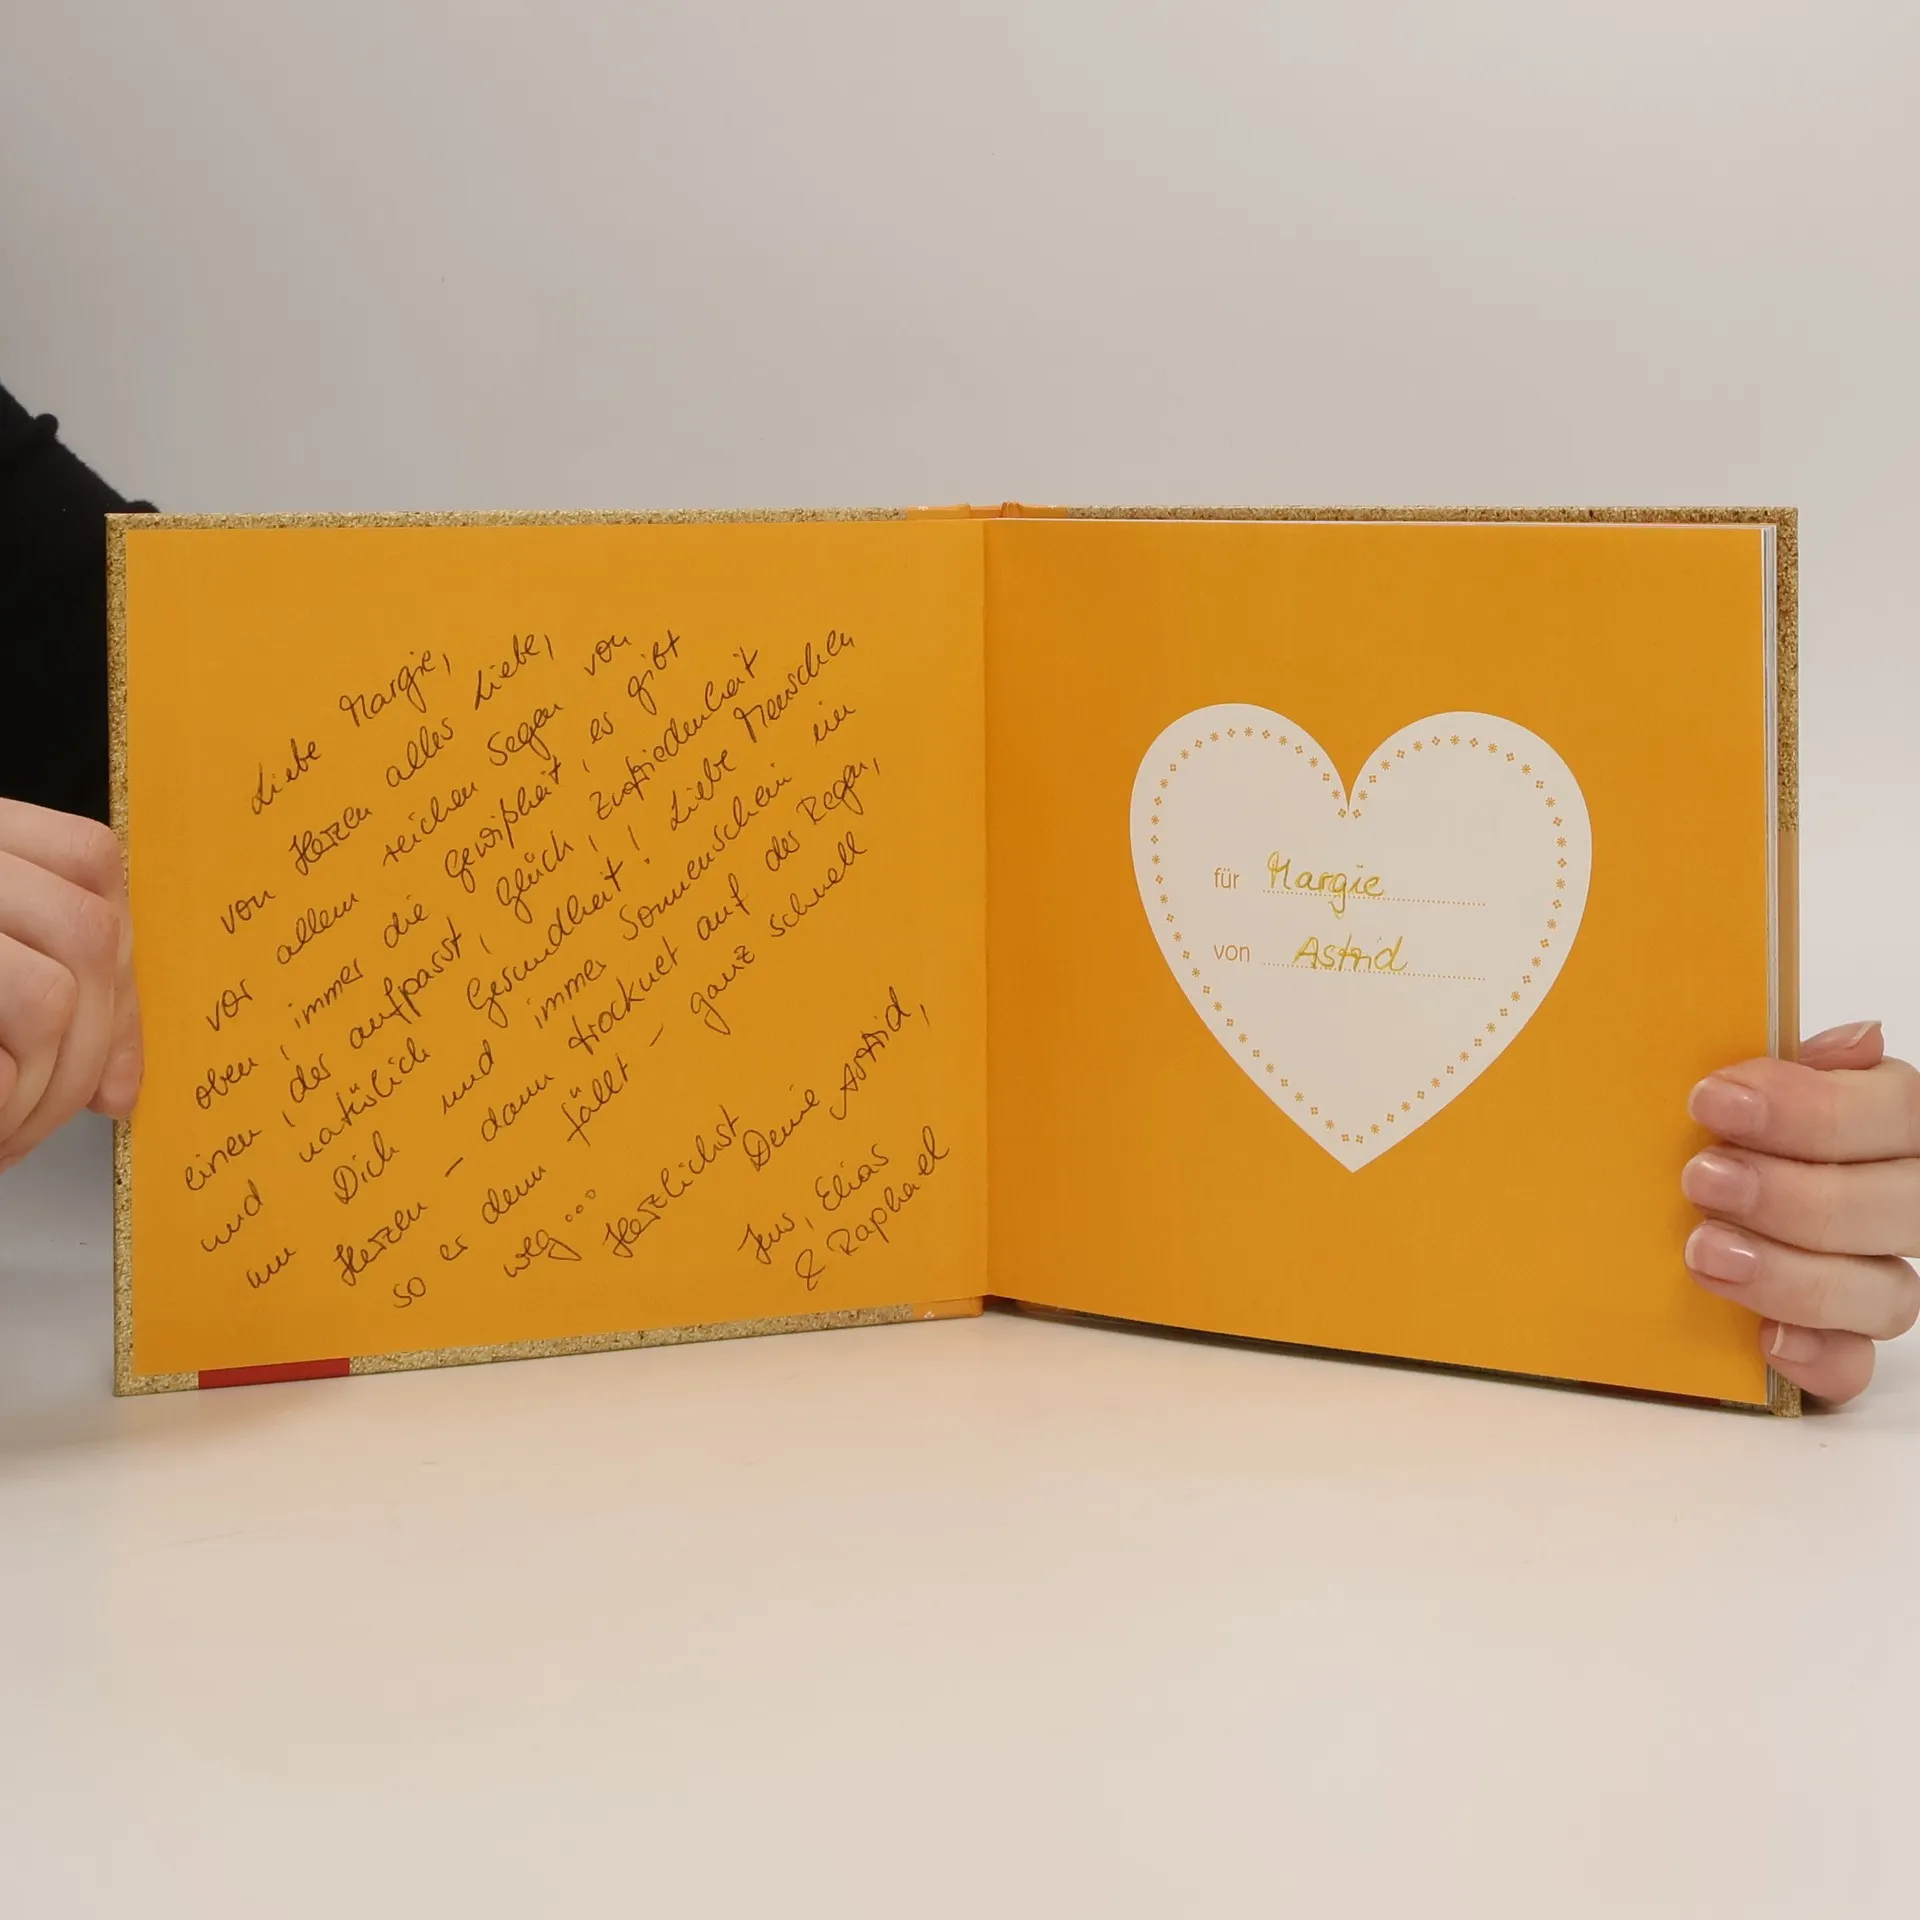 Liebe Margie,
von Herzen alles Liebe,
vor allem reichen Segen von
oben, immer die Gewißheit, es gibt
einen, der aufpasst, Glück, Zufriedenheit
und natürlich Gesundheit! Liebe Menschen
um Dich und immer Sonnenschein im
Herzen – dann trocknet auf der Regen,
so er denn fällt – ganz schnell
weg...
Herzlichst
Deine Astrid,
Jens, Elias
& Raphael
für Margie
von Astrid